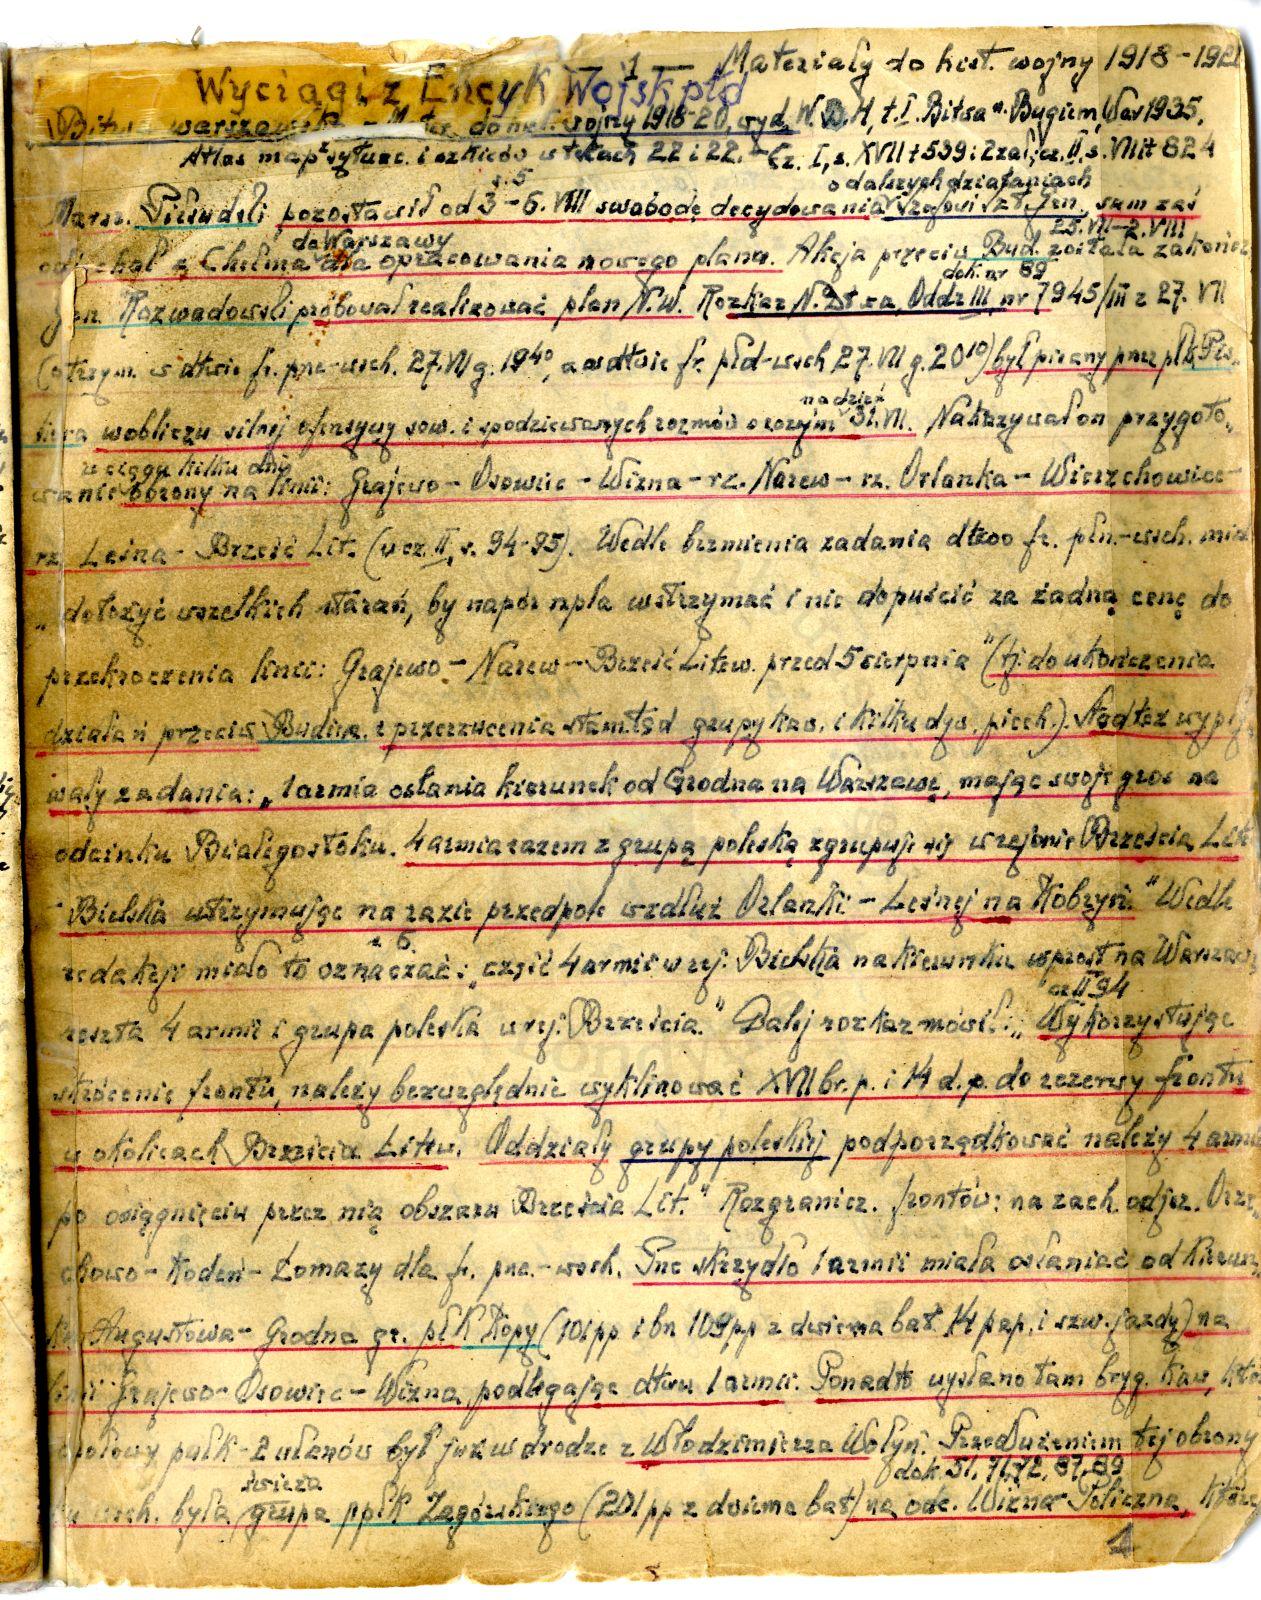 – 1 – Materiały do hist. wojny 1918–1921
Wyciągi z Encyk Wojsk płd
Bitwa warszawska – Mater. do hist. wojny 1918-20, wyd. W.B.H, t. I. Bitwa n. Bugiem, War 1935.
Atlas map sytuac. i szkiców w tekach 22 i 22. – Cz. I, s. XVII + 539 i 2 zał., cz. II, s. VIII + 824
s. 5 o dalszych działaniach
Marsz. Piłsudski pozostawił od 3 – 6. VIII swobodę decydowania szefowi szt. gen., sam zaś
do Warszawy 25. VII – 2. VIII
odjechał z Chełma dla opracowania nowego planu. Akcja przeciw Bud. została zakończ.
dok. nr 89
Gen. Rozwadowski próbował realizować plan N.W. Rozkaz N. D-twa, Oddz III, nr 7945/III z 27. VII
(otrzym. w dtwie fr. pnc-wsch. 27. VII g. 19⁴⁰, a w dtwie fr. płd-wsch 27. VII g. 20¹⁰) był pisany przez płk Pis„
na dzień
kora wobliczu silnej ofensywy sow. i spodziewanych rozmów o rozejm 31. VII. Nakazywał on przygoto„
w ciągu kilku dni
wanie obrony na linii: Grajewo – Osowiec – Wizna – rz. Narew – rz. Orlanka – Wierzchowice –
rz. Leśna – Brześć Lit. (v cz. II, s. 94-95). Wedle brzmienia zadania dtwo fr. płn.-wsch. miał
„dołożyć wszelkich starań, by napór npla wstrzymać i nie dopuścić za żadną cenę do
przekroczenia linii: Grajewo – Narew – Brześć Litew. przed 5 sierpnia" (tj. do ukończenia
działań przeciw Budien. i przerzucenia stamtąd grupy kaw. i kilku dyw. piech.). Stąd też wypły„
wały zadania: „1 armia osłania kierunek od Grodna na Warszawę, mając swoje gros na
odcinku Białegostoku. 4 armia razem z grupą poleską zgrupuje się w rejonie Brześcia Lit.
– Bielska utrzymując na razie przedpole wzdłuż Orlanki – Leśnej na Kobryń." Wedle
s 6.
redakcji miało to oznaczać: „część 4 armii w rej. Bielska na kierunku wprost na Warszawę
cz II 94
reszta 4 armii i grupa poleska w rej. Brześcia." Dalej rozkaz mówił: „Wykorzystując
skrócenie frontu, należy bezwzględnie wyklinować XVII br. p. i 14 d. p. do rezerwy frontu
w okolicach Brześcia Litew. Oddziały grupy poleskiej podporządkować należy 4 armii
po osiągnięciu przez nią obszaru Brześcia Lit." Rozgranicz. frontów: na zach. od jez. Orze„
chowo – Kodeń – Łomazy dla fr. pnc.-wsch. Pnc skrzydło 1 armii miała osłaniać od kierun„
ku Augustowa – Grodna gr. płk Kopy (101 pp i bn 109 pp z dwiema bat. 14 pap. i szw. jazdy) na
linii Grajewo – Osowiec – Wizna, podlegając dtwu 1 armii. Ponadto wysłano tam bryg. kaw, któ„
czołowy pułk – 2 ułanów był już w drodze z Włodzimierza Wołyń. Przedłużeniem tej obrony
świeża dok. 51, 71, 72, 87, 89
ku wsch. była grupa ppłk Zagórskiego (201 pp z dwiema bat) na odc. Wizna – Pliczna, która
1